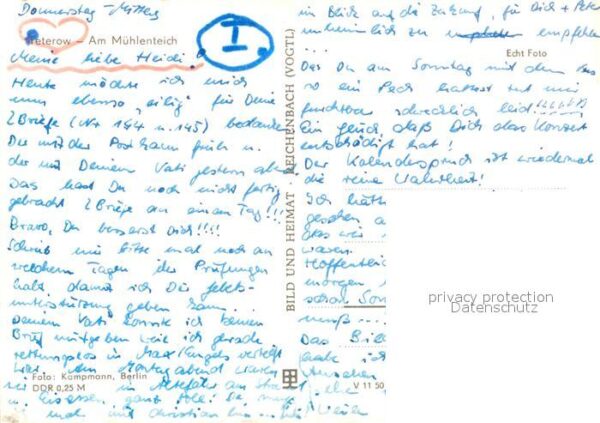 Donnerstag - Mittag
Teterow - Am Mühlenteich
Meine liebe Heidi!
Heute möchte ich mich
nun ebenso eilig für Deine
2 Briefe (Nr 144 u. 145) bedanken
Der mit der Post kam früh u.
der mit Deinem Vati gestern abend
Das hast Du noch nicht fertig
gebracht 2 Briefe an einem Tag!!!
Bravo, Du besserst Dich!!!!
Schreib mir bitte mal noch an
welchem Tagen die Prüfungen
habt damit ich Dir
unterstützung geben kann.
Deinem Vati konnte ich keinen
Brief mitgeben weil ich gerade
rettungslos in vertieft
war. Am Montag abend waren
wir in am
u. Eisessen ganz
u. mich und Christian
Foto: Kampmann, Berlin
DDR 0,25 M
BILD UND HEIMAT · REICHENBACH (VOGTL)
I
im Blick auf die Zukunft, für Dich + Peter
zu empfehlen
Echt Foto
Das Du am Sonntag mit dem
so ein Pech hattest tut mir
furchtbar schrecklich leid!!!!!!!
Ein Glück daß Dich das Konzert
entschädigt hat!
Der Kalenderspruch ist wiedermal
die reine Wahrheit!
Ich hätte
gesehen
waren
Hoffentlich
morgen
schon Sonn
muß ...
Das Bild
habe ich
V 11 50
privacy protection
Datenschutz